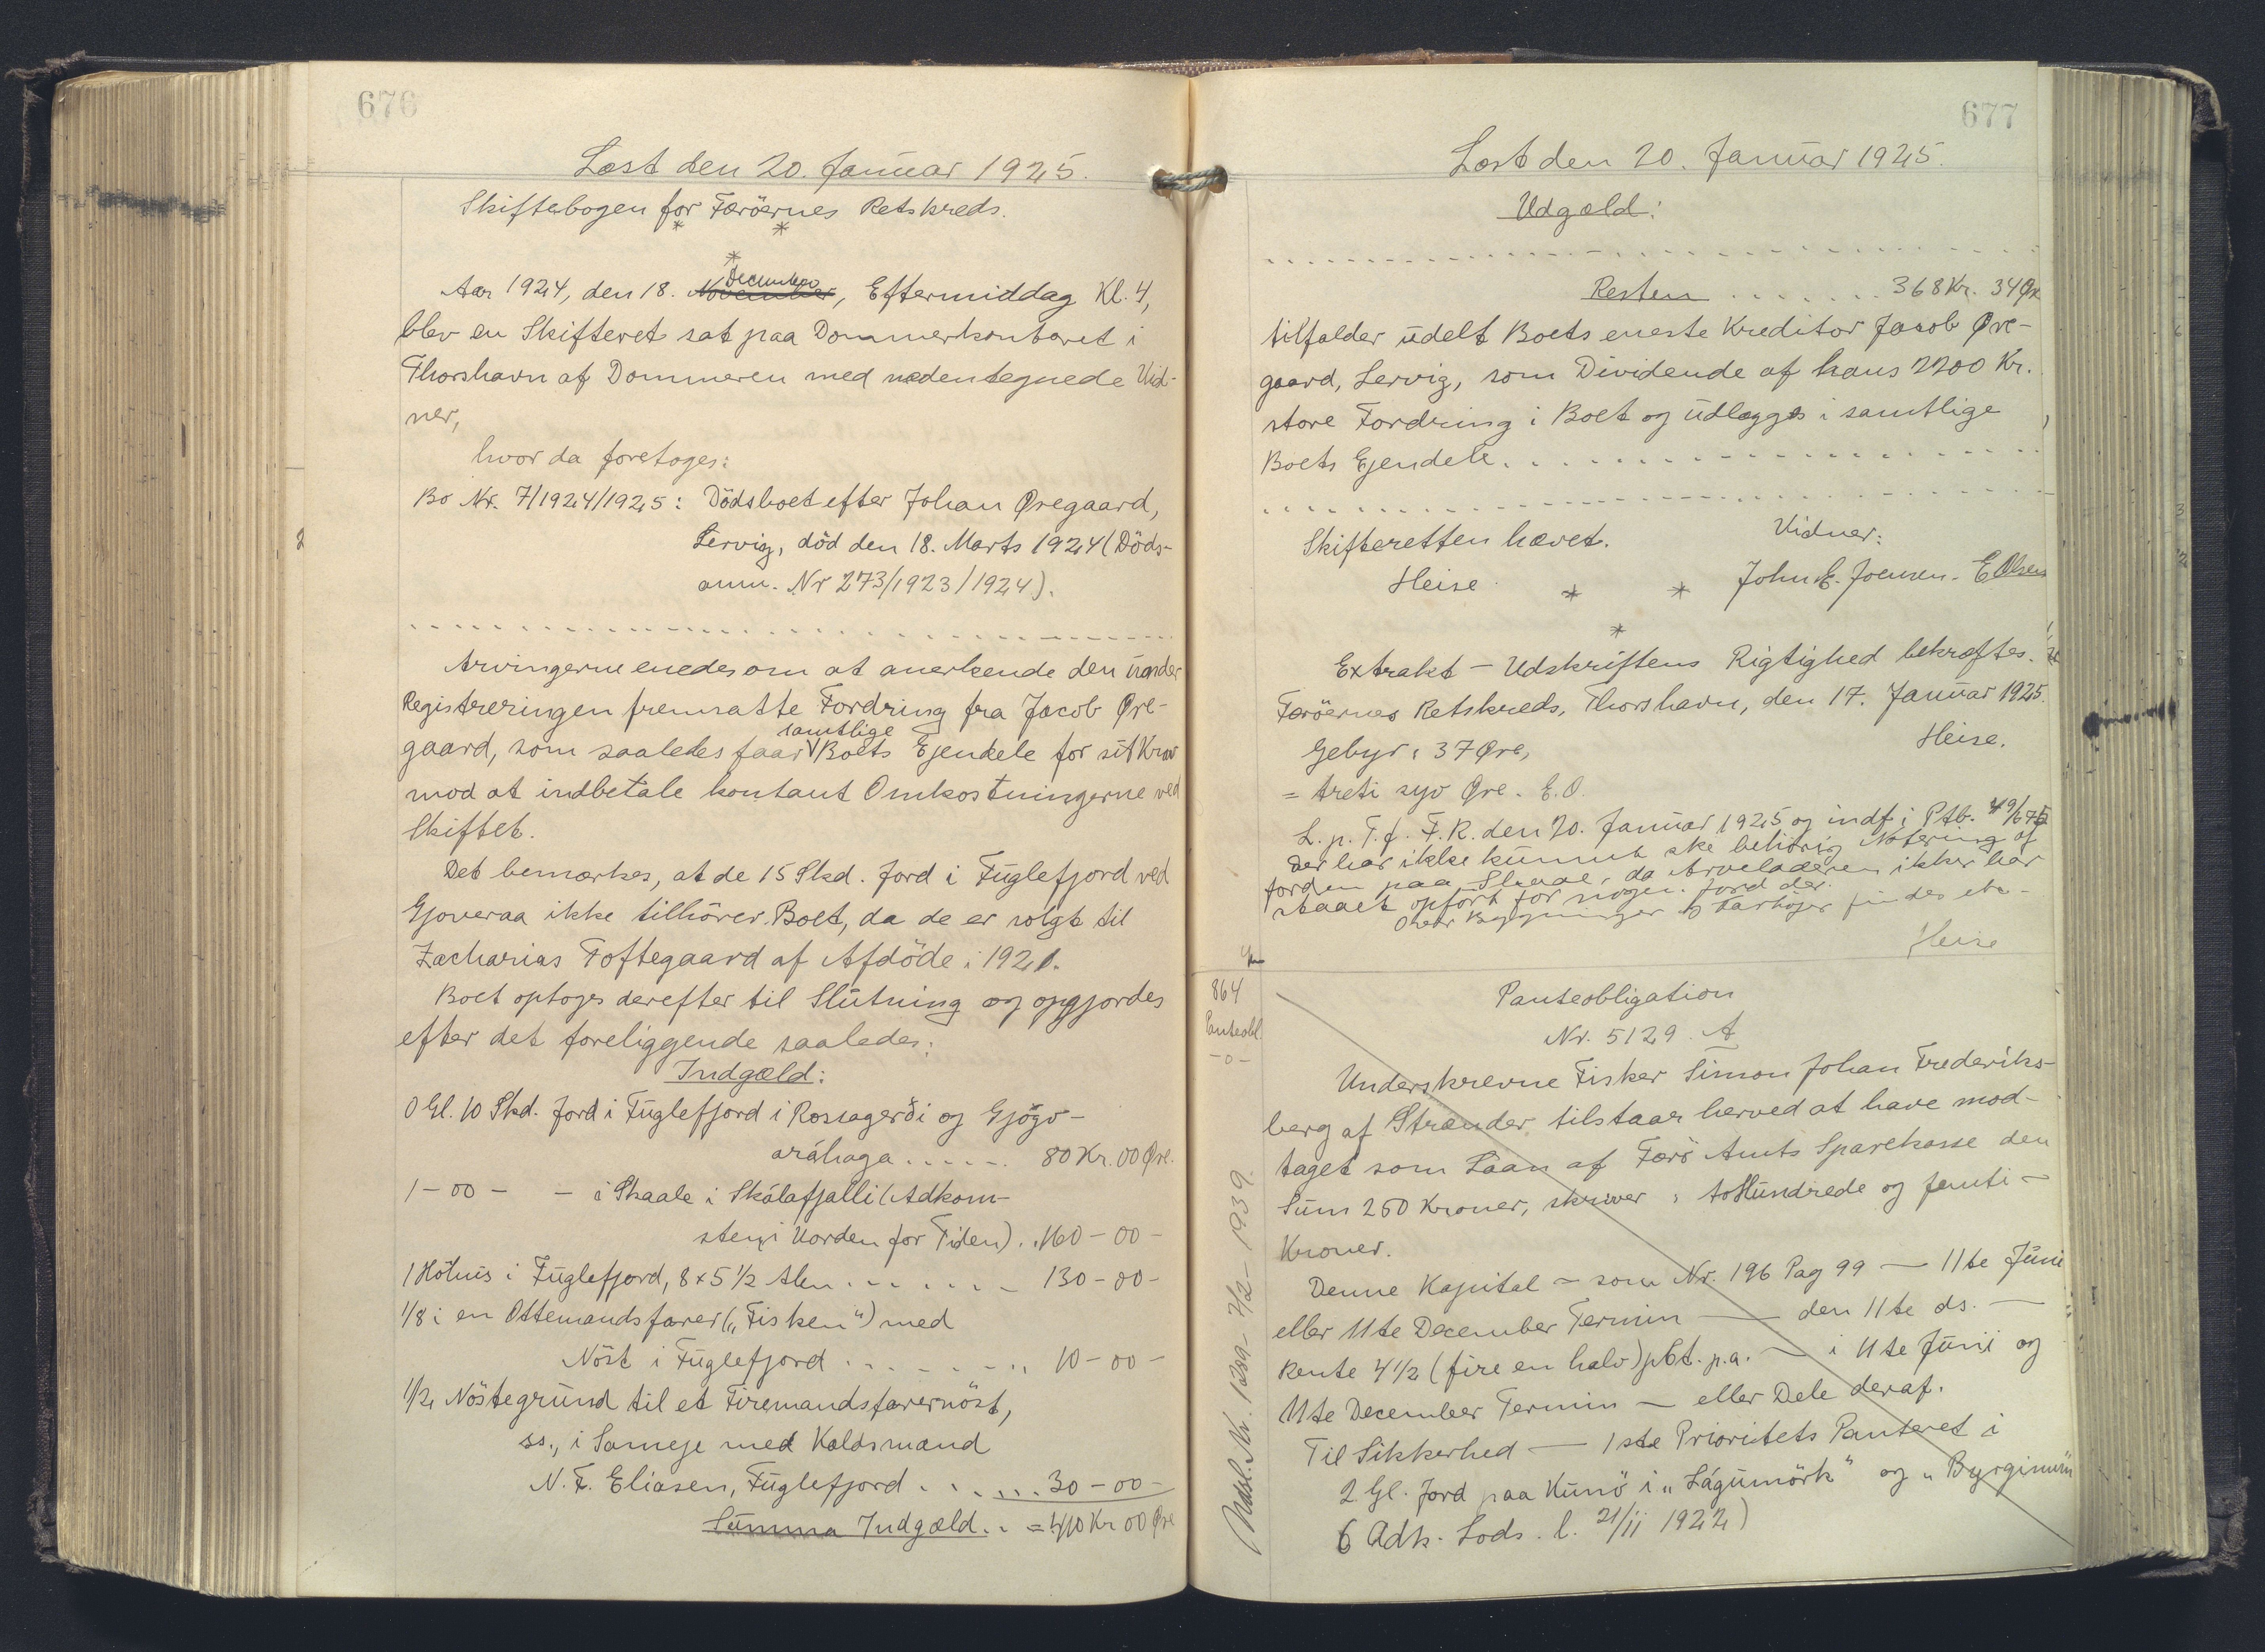 676
Læst den 20. Januar 1925.
Skiftebogen for Færöernes Retskreds.
* *
*
Aar 1924, den 18. November December, Eftermiddag Kl. 4,
blev en Skifteret sat paa Dommerkontoret i
Thorshavn af Dommeren med nedentegnede Vid-
ner,
hvor da foretoges:
Bo Nr. 7/1924/1925: Dödsboet efter Johan Øregaard,
Lervig, död den 18. Marts 1924 (Döds-
anm. Nr 273/1923/1924).
Arvingerne enedes om at anerkende den under
Registreringen fremsatte Fordring fra Jacob Øre-
gaard, som saaledes faar samtlige Boets Ejendele for sit Krav
mod at indbetale kontant Omkostningerne ved
Skiftet.
Det bemærkes, at de 15 Skd. Jord i Fuglefjord ved
Gjoveraa ikke tilhörer Boet, da de er solgt til
Zacharias Toftegaard af Afdöde i 1921.
Boet optoges derefter til Slutning og opgjordes
efter det foreliggende saaledes:
Indgæld:
0 Gl. 10 Skd. Jord i Fuglefjord i Rossagerði og Gjögv-
aráhaga ...... 80 Kr. 00 Øre.
1 - 00 - - i Skaale i Skálafjalli (Adkom-
sten i Vorden for Tiden) .. 160 - 00 -
1 Höhus i Fuglefjord, 8 x 5 1/2 Alen ...... 130 - 00 -
1/8 i en Ottemandsfarer („Fisken“) med
Nöst i Fuglefjord ........ 10 - 00 -
1/2 Nöstegrund til et Firemandsfarernöst,
ss., i Sameje med Kaldsmand
N. F. Eliasen, Fuglefjord ...... 30 - 00 -
Summa Indgæld .. = 410 Kr 00 Øre
677
Læst den 20. Januar 1925.
Udgæld:
Resten ....... 368 Kr. 34 Øre
tilfalder udelt Boets eneste Kreditor Jacob Øre-
gaard, Lervig, som Dividende af hans 2200 Kr.
store Fordring i Boet og udlægges i samtlige
Boets Ejendele.
Skifteretten hævet. Vidner:
Heise * * John E. Joensen. E Olsen
*
Extrakt - Udskriftens Rigtighed bekræftes.
Færöernes Retskreds, Thorshavn, den 17. Januar 1925.
Gebyr: 37 Øre, Heise.
= treti syv Øre. E.O.
L. p. T. f. F. R. den 20. Januar 1925 og indf i Ptb. 49/675
Der har ikke kunnet ske behörig Notering af
Jorden paa Skaale, da Arveladeren ikke har
staaet opfört for nogen Jord der.
Over Bygninger og Fartöjer findes
Heise
864
Panteobl.
-o-
Panteobligation
Nr. 5129 A
Underskrevne Fisker Simon Johan Frederiks-
berg af Strænder tilstaar herved at have mod-
taget som Laan af Færö Amts Sparekasse den
Sum 250 Kroner, skriver: toHundrede og femti -
Kroner.
Denne Kapital - som Nr. 196 Pag 99 - 11te Juni
eller 11te December Termin - den 11te ds. -
Rente 4 1/2 (fire en halv) pCt. p.a. - i 11te Juni og
11te December Termin - eller Dele deraf.
Til Sikkerhed - 1ste Prioritets Panteret i
2 Gl. Jord paa Kunö i „Lágumörk“ og „Byrginum
6 Adk. Lods. l. 21/11 1922)
Udsl. Nr. 1389 - 7/2 - 1939.